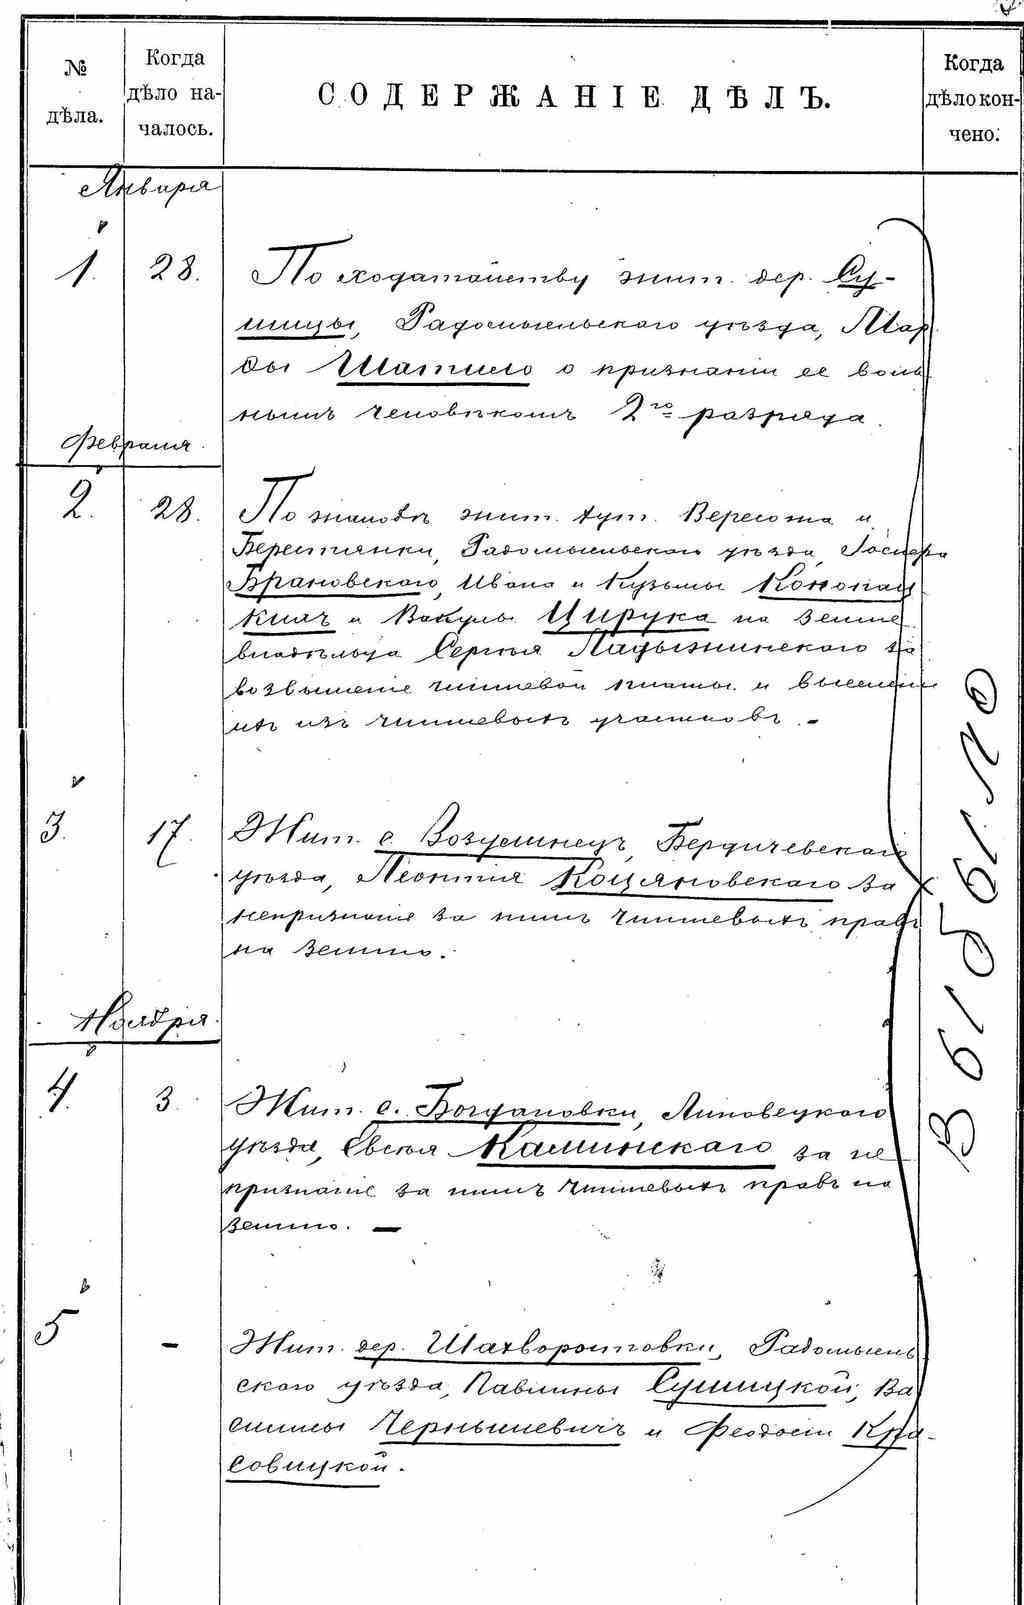 № дѣла.
Когда дѣло началось.
СОДЕРЖАНІЕ ДѢЛЪ.
Когда дѣло кончено.
Января
1. 28. По ходатайству жит. дер. Су-
шицы, Радомысльскаго уѣзда, Мар
ды Шатило о признаніи ее воль
нымъ человѣкомъ 2го разряда.
Февраля.
2. 28. По жалобѣ жит. хут. Вересожа и
Берестянки, Радомысльскаго уѣзда,
Брановскаго, Ивана и Кузьмы Конопац
кихъ и Вакулы Цирука на земле
владѣльца Сергѣя Ладыжинскаго за
возвышеніе чиншевой платы и выселеніе
ихъ изъ чиншевыхъ участковъ. –
3. 17. Жит. с. Бердичевскаго
уѣзда, Леонтія Коцяновскаго за
непризнаніе за нимъ чиншевыхъ правъ
на землю.
Ноября.
4. 3. Жит. с. Богдановки, Липовецкаго
уѣзда, Евсѣя Каминскаго за не
признаніе за нимъ чиншевыхъ правъ на
землю. —
5 – Жит. дер. Шахворостовки, Радомысль
скаго уѣзда, Павлины Сушицкой, Ва
силисы Чернышевичъ и Феодосіи Кра-
совицкой.
Выбыло